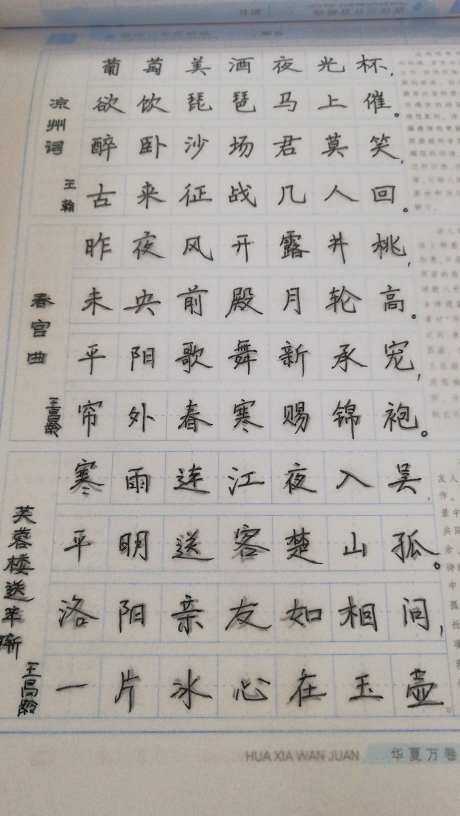 凉州词
王翰
葡萄美酒夜光杯,
欲饮琵琶马上催。
醉卧沙场君莫笑,
古来征战几人回。
春宫曲
王昌龄
昨夜风开露井桃,
未央前殿月轮高。
平阳歌舞新承宠,
帘外春寒赐锦袍。
芙蓉楼送辛渐
王昌龄
寒雨连江夜入吴,
平明送客楚山孤。
洛阳亲友如相问,
一片冰心在玉壶
HUA XIA WAN JUAN
华夏万卷